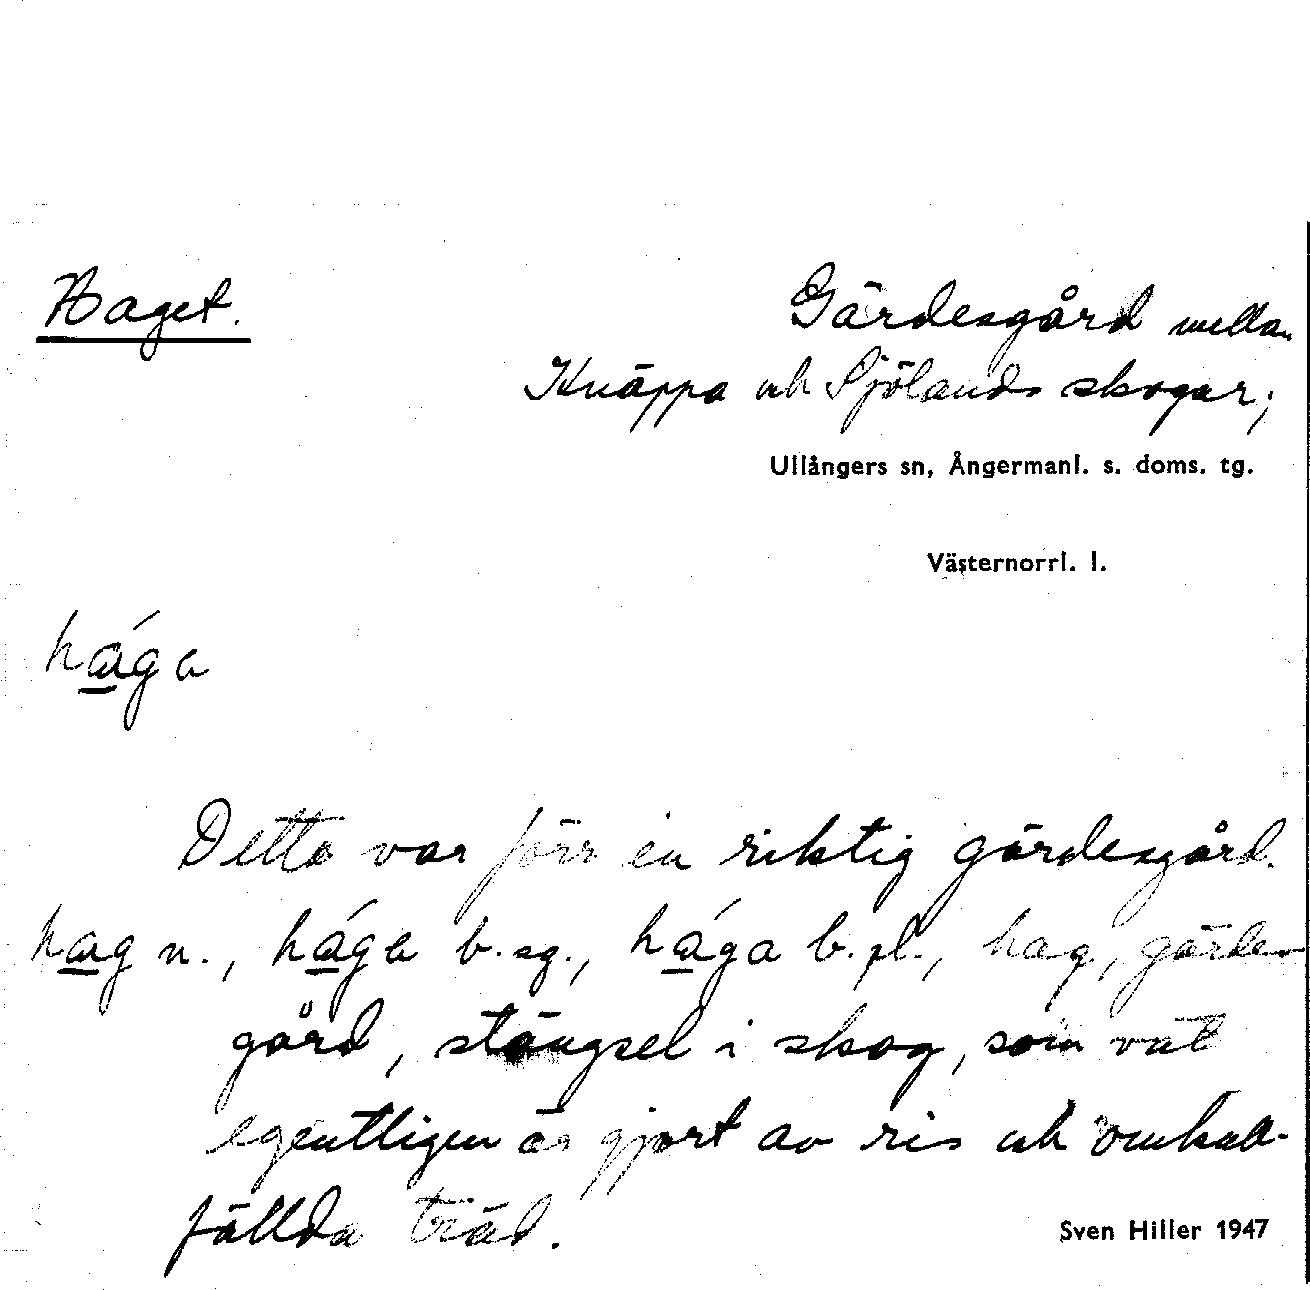 Haget.
Gärdesgård mellan
Knäppa och Sjölands skogar;
Ullångers sn, Ångermanl. s. doms. tg.
Västernorrl. l.
há̲ga
Detta var förr en riktig gärdesgård.
ha̲g n., há̲ga b. sg., há̲ga b. pl., hag, gärdes-
gård, stängsel i skog, som väl
egentligen är gjort av ris och omkull-
fällda träd.
Sven Hiller 1947